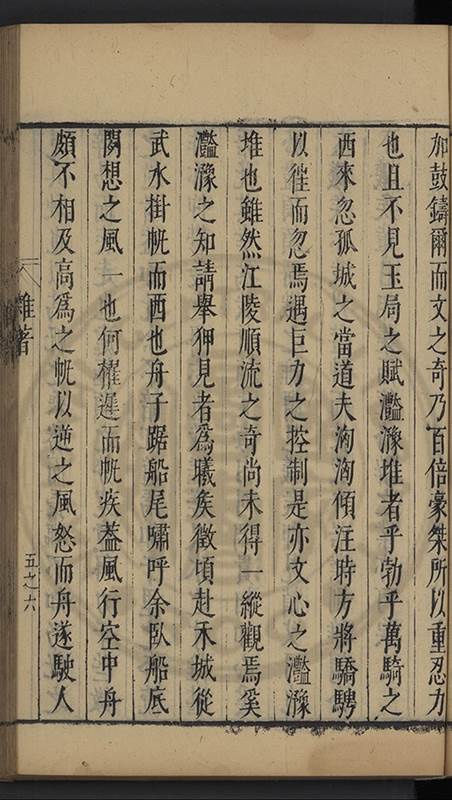 加鼓鑄爾而文之奇乃百倍豪桀所以重忍力
也且不見玉局之賦灩澦堆者乎勃乎萬騎之
西來忽孤城之當道夫洶洶傾注時方將驕騁
以徃而忽焉遇巨力之控制是亦文心之灩澦
堆也雖然江陵順流之奇尚未得一縱觀焉奚
灩澦之知請舉狎見者爲曦矣徵頃赴禾城從
武水掛帆而西也舟子踞船尾嘯呼余臥船底
閴想之風一也何櫂遲而帆疾葢風行空中舟
頗不相及高爲之帆以逆之風怒而舟遂駛人
雜著
五之六